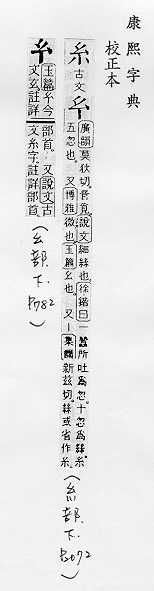 康熙字典
校正本
糸
古文𢆯
廣韻莫狄切。音覓。說文細絲也。徐鍇曰一蠶所吐為忽。十忽為絲。糸
五忽也。又博雅微也。又玉篇幺也。又｜集韻新茲切。絲或省作糸。
(糸部.下.
𢆯
玉篇𢆯今
文玄註詳
部首。又說文古
文糸字。註詳部首
(幺部.下.P782)